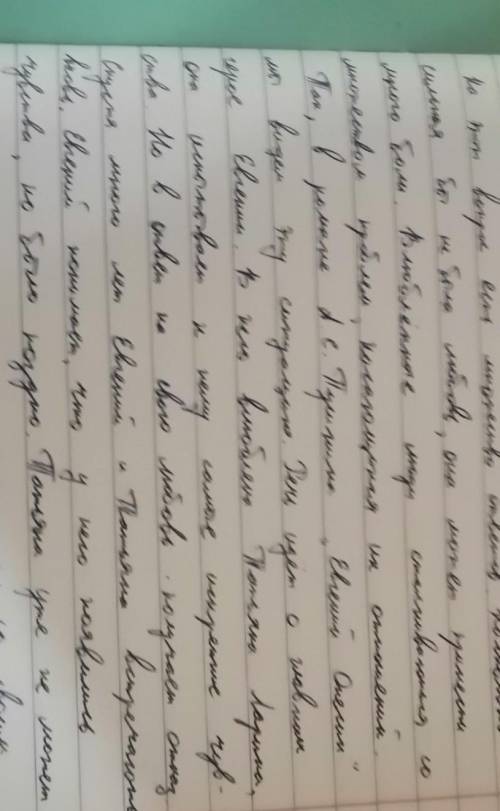 На этот вопрос есть множество ответов.
сильная бы не была любовь, она может принести
много боли. Влюблённые люди сталкиваются со
множеством проблем, касающихся их отношений.
Так, в романе А. С. Пушкина „Евгений Онегин"
мы видим эту ситуацию. Речь идёт о главном
герое Евгении. В него влюблена Татьяна Ларина,
она испытывает к нему самые искренние чув-
ства. Но в ответ на свою любовь получает отказ
Спустя много лет Евгений и Татьяна встречаются
вновь. Евгений понимает, что у него появились
чувства, но было поздно. Татьяна уже не может